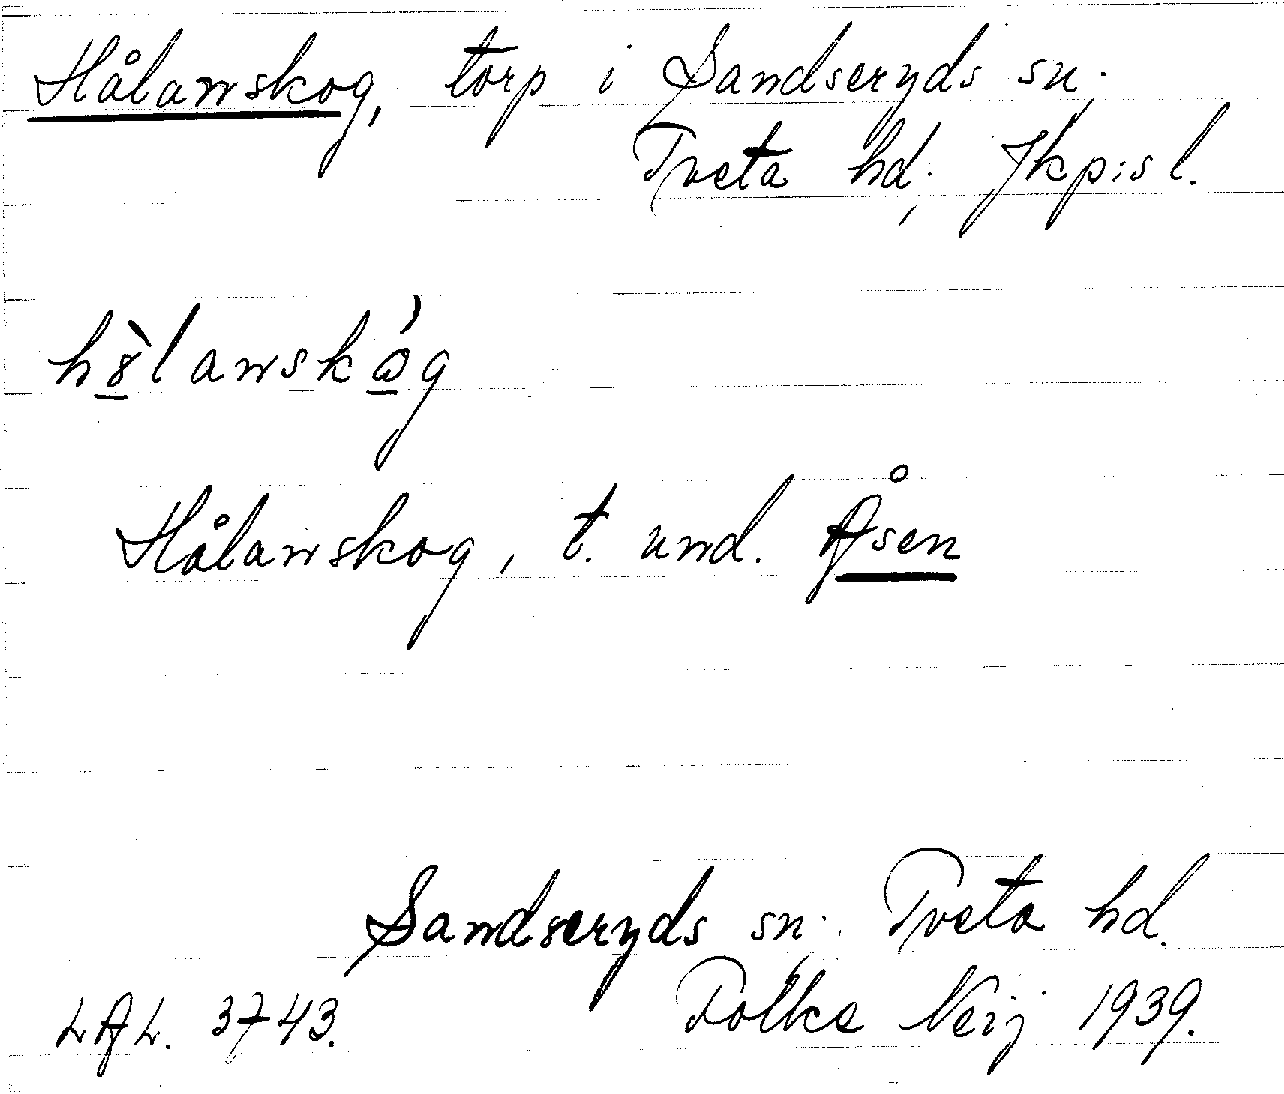 Hålanskog, torp i Sandseryds sn.
Tveta hd; Jkp:s l.
Hålanskog, t. und. Åsen
Sandseryds sn. Tveta hd.
LAL. 3743. Folke Neij 1939.